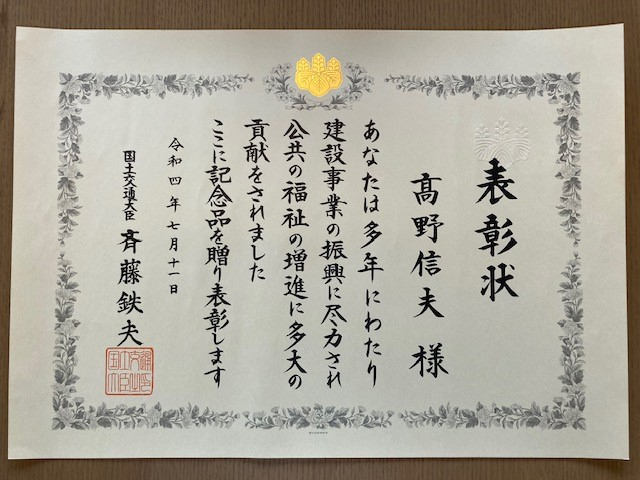 表彰状
髙野信夫様
あなたは多年にわたり
建設事業の振興に尽力され
公共の福祉の増進に多大の
貢献をされました
ここに記念品を贈り表彰します
令和四年七月十一日
国土交通大臣 斉藤鉄夫